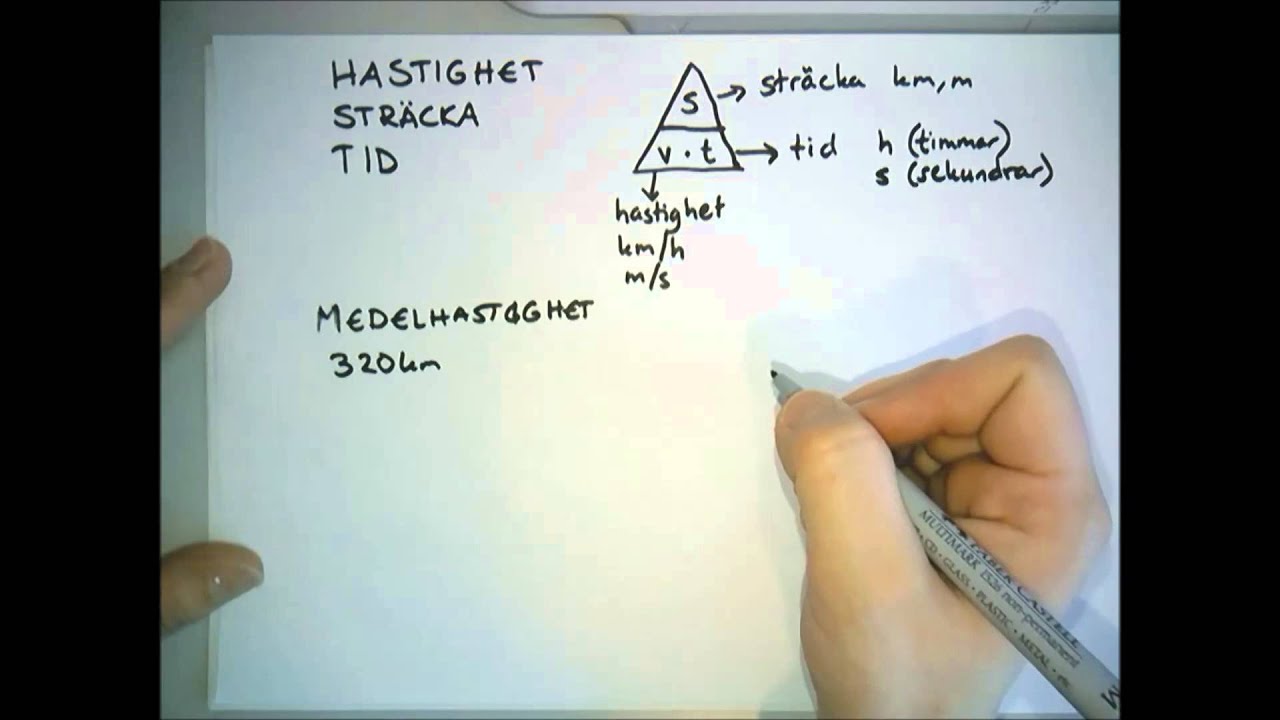 HASTIGHET
STRÄCKA
TID
s → sträcka km, m
v · t → tid h (timmar)
s (sekundrar)
hastighet
km/h
m/s
MEDELHASTIGHET
320km
FABER-CASTELL
MULTIMARK 1525 non-permanent
CD • GLASS • PLASTIC • METAL • etc
M